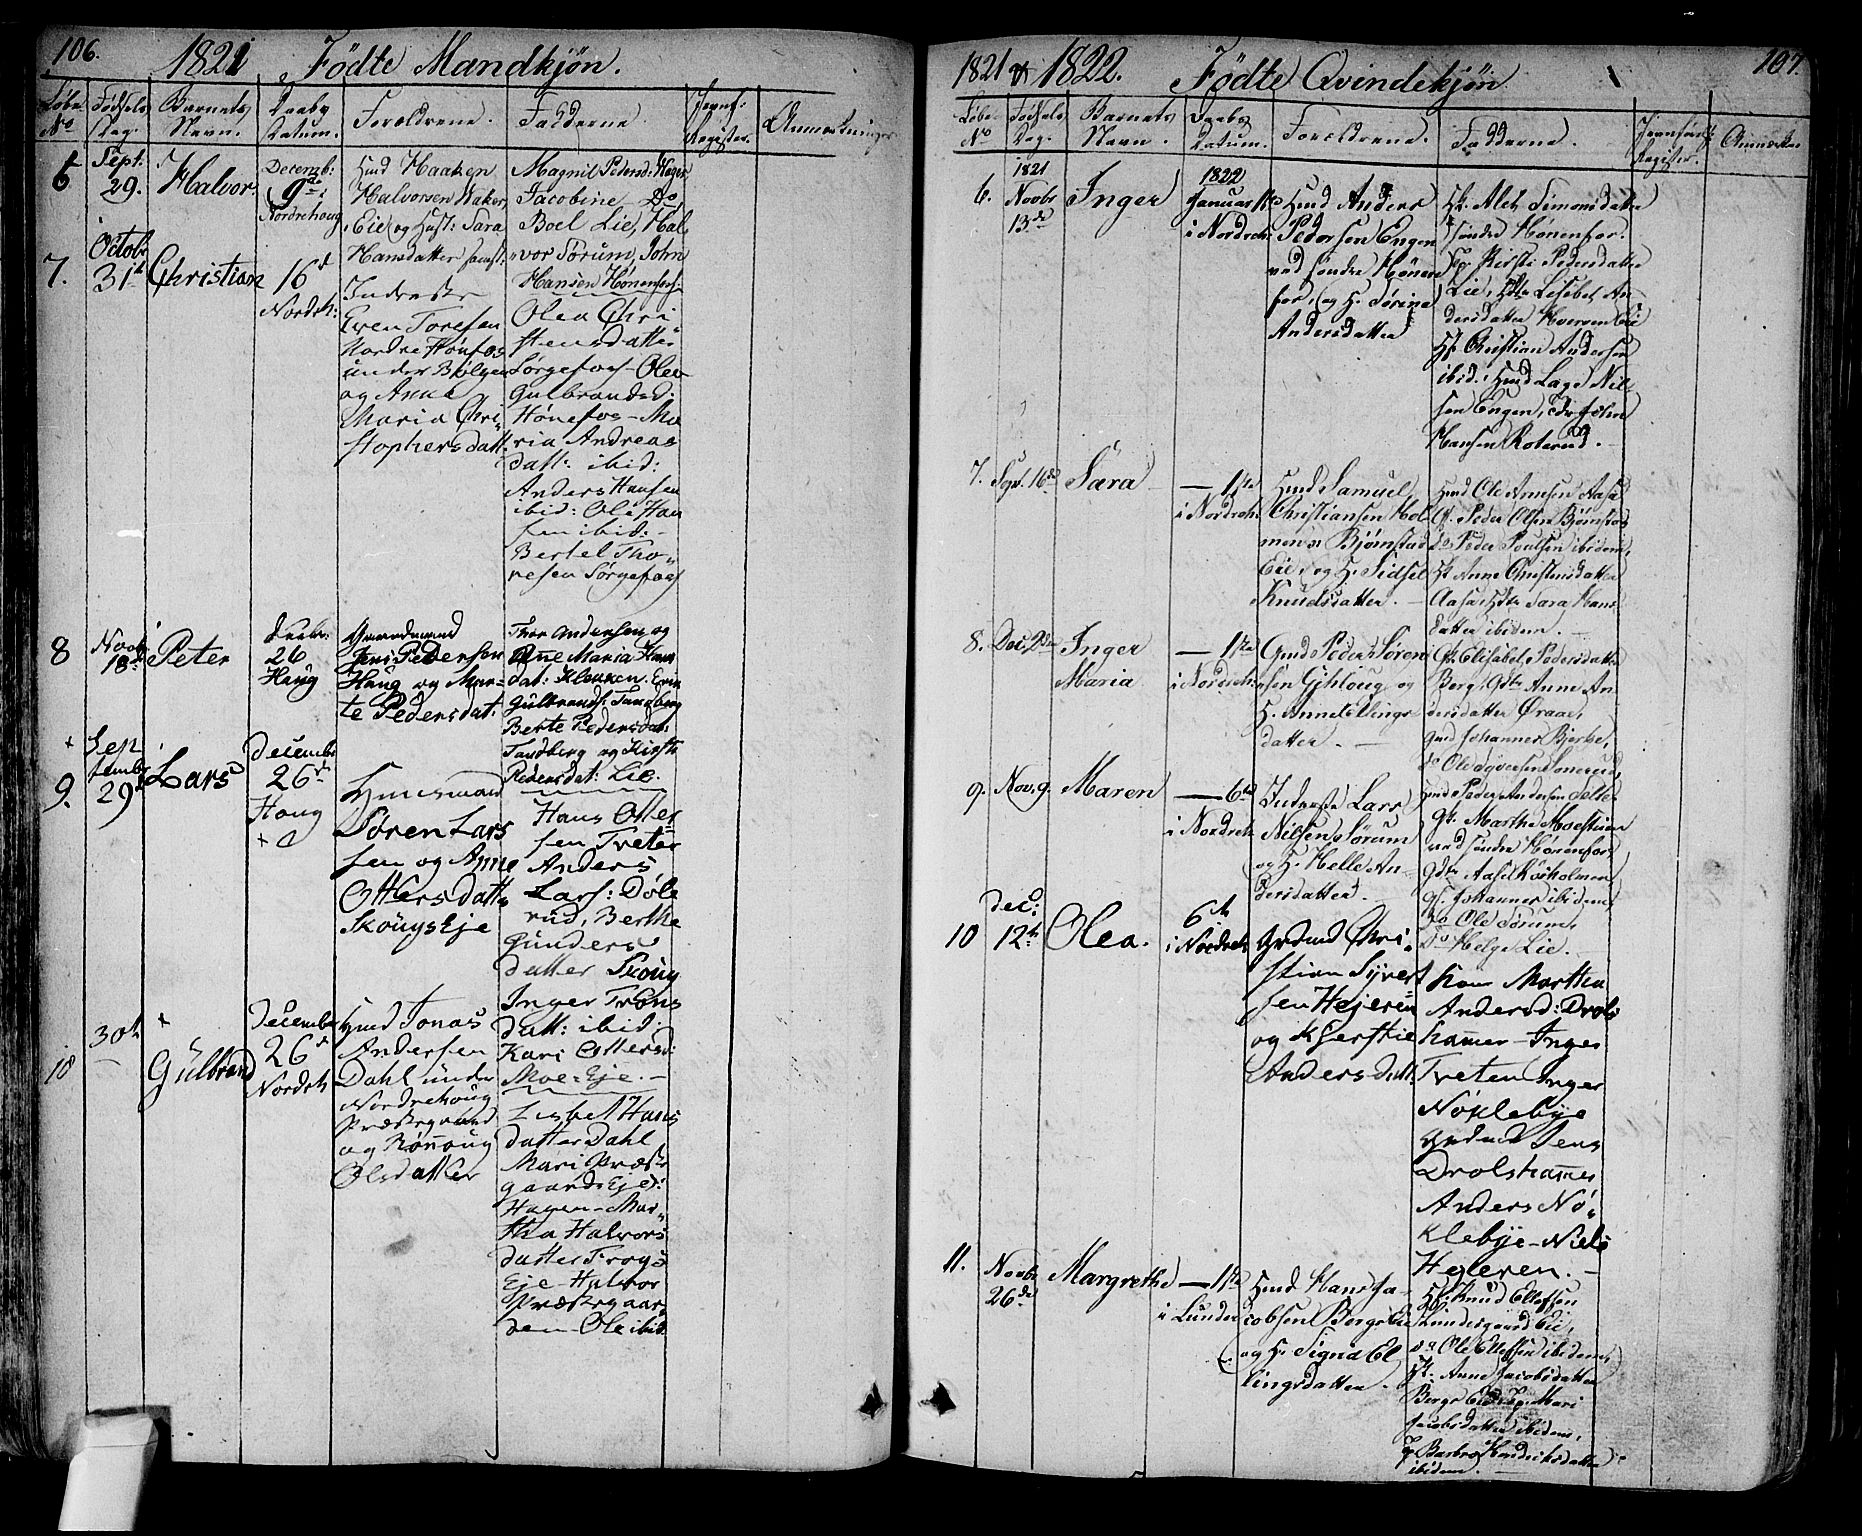 106.
1821 Födte Mandkjön.
Löbe No
Födsels Dag.
Barnets Navn.
Daabs Datum.
Foreldrene.
Fadderne
Jevnf: Register.
Anmerkninger
6
Sept: 29.
Halvor
Decemb: 9de
Nordrehoug
Hmd Haaken
Halvorsen Haker
Eie og Hust: Sara
Hansdatter
Magnil Pedersd: Hager
Jacobine Do
Boel Lie, Hal
vor Sørum, John
Hansen Hønenfos.
7.
Octobr 31t
Christian
16d
Nordreh:
Inderste
Even Toresen
Nordre Hønfos
under
og Anne
Maria Chri
stophersdatt:
Olea Chri
stensdatt:
Sørgefoss - Olea
Gulbrandsd:
Hønefos - Ma
ria Andreas
datt: ibid:
Anders Hansen
ibid: Ole Han
sen ibid: -
Bertel Tho
resen Sørgefoss
8
Novbr 18d
Peter
26
Haug
Gaardmand
Jens Pedersen
Haug og Mar=
te Pedersdat:
Thor Andersen og
Anne Maria Hans
dat: Klekken. Even
Gulbrands: Tandberg
Berte Pedersdat:
Tandberg og Kirsti
Pedersdat: Lie.
9.
Sep
tembr
29d
Lars
Decembr
26d
Houg
Huusmand
Søren Lars
sen og Anne
Ottersdatt
Skougseje
Hans Otter
sen Tveter
Anders
Lars: Döle
rud, Berthe
Gunders
datter Skoug
Inger Trons
datt: ibid:
Kari Ottersd:
Moe=Eje. -
10
30h
Gulbrand
December
26d
Nordreh
Hmd Jonas
Andersen
Dahl under
Nordrehoug
Præstegaard
og Rönnoug
Olsdatter
Lisbet Hans
datter Dahl
Mari Præste
gaards Eje:
Hagen - Mar
tha Halvors
datter Trogs
Eje - Halvor
Præstegaar
den - Ole ibid.
1821 & 1822. Födte Qvindekjön.
107.
Löbe No
Födsels Dag.
Barnets Navn.
Daabs Datum.
Foreldrene.
Fadderne.
Jevnför: Register.
Anmærkn
6.
1821
Novbr
13de
Inger
1822
Januar 1ste
i Nordreh:
Hmd Anders
Pedersen Engen
ved søndre Hønen
for, og H. Sørine
Andersdatter
Hk. Alet Simonsdatter
søndre Hønenfor.
Pg. Kirsti Pedersdatter
Lie, Lisabet An
dersdatter Hverven Eie
Hk. Christian Andersen
ibid. Hmd Lage Nil
sen Engen, John
Hansen Roterud. -
7.
Sept. 16de
Sara
— 1ste
i Nordreh:
Hmd Samuel
Christiansen Hol
men Bjørnstad
Eie, og H. Sidsel
Knudsdatter. -
Hmd Ole Arnesen Aasa
Peder Olsen Bjørnstad
do Peder Poulsen ibidem,
Hk. Anne Christensdatter
Aasa, Sara Hans
datter ibidem. -
8.
Dec. 2den
Inger
Maria
— 1ste
i Nordreh:
Gmd Peder Søren
sen Gjhloug og
H. Anne Ellings
datter. -
Gk. Elisabet Pedersdatter
Berg, Gdtr Anne An
dersdatter Øraae,
Gmd Johannes Bjerke,
do Ole Syversen Sonerud,
9.
Nov. 9.
Maren
— 6te
i Nordreh:
Inderste Lars
Nilsen Sørum
og H. Helle An-
dersdatter.
Hmd Peder Andersen Selte
Gk. Marthe Moestuen
ved søndre Hønenfor,
Gdtr Aase Røsholmen
Gs. Johannes ibidem,
do Ole Sørum,
do Helge Lie. -
10
Dec:
12te
Olea.
6te
i Nordreh
Grdmd Chri
stian Syvert
sen Hejeren
og Kjerstie
Anders datt:
Kone Marthea
Andersd: Drols
hamer - Inger
Treten Inger
Nøklebye
Grdmd Jens
Drolshamer
Anders Nø
klebye - Niels
Hejeren. -
11.
Novbr
26de
Margrethe
— 1ste
i Lunder
Hmd Hans Ja
cobsen Bergs Eie
og H. Signe El
lingsdatter.
Hk. Knud Ellefsen
Lundesgaard Eie,
do Ole Ellefsen ibidem,
Hk. Anne Jacobsdatter
Bergs Eie, Pg. Mari
Jacobsdatter ibidem,
Pg Barbro Hendriksdatter
ibidem. -